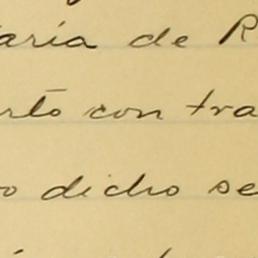 aría de R
rto con tra
o dicho se